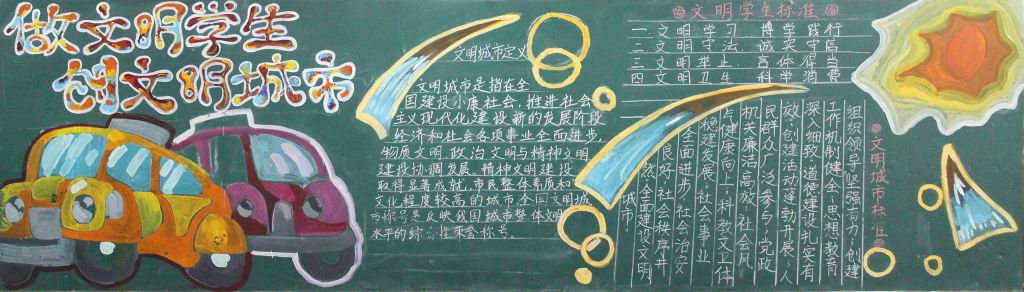 做文明学生
创文明城市
文明城市定义
文明城市是指在全
国建设小康社会,推进社会
主义现代化建设新的发展阶段
经济和社会各项事业全面进步,
物质文明、政治文明与精神文明
建设协调发展。精神文明建设
取得显著成就,市民整体素质和
文化程度较高的城市,全国文明城
市称号是反映我国城市整体文明
水平的综合性荣誉称号。
文明学生标准
一 文明学习 博学践行
二 文明守法 诚实守信
三 文明举止 言体得当
四 文明卫生 科学消费
文明城市标准
组织领导坚强有力;创建
工作机制健全;思想教育
深入细致;道德建设扎实有
效;创建活动蓬勃开展;人
民群众广泛参与;党政
机关廉洁高效;社会风
与健康向上;科教文卫体
稳建发展;社会事业
全面进步;社会治安
良好;社会秩序井
然;全面建设文明
城市